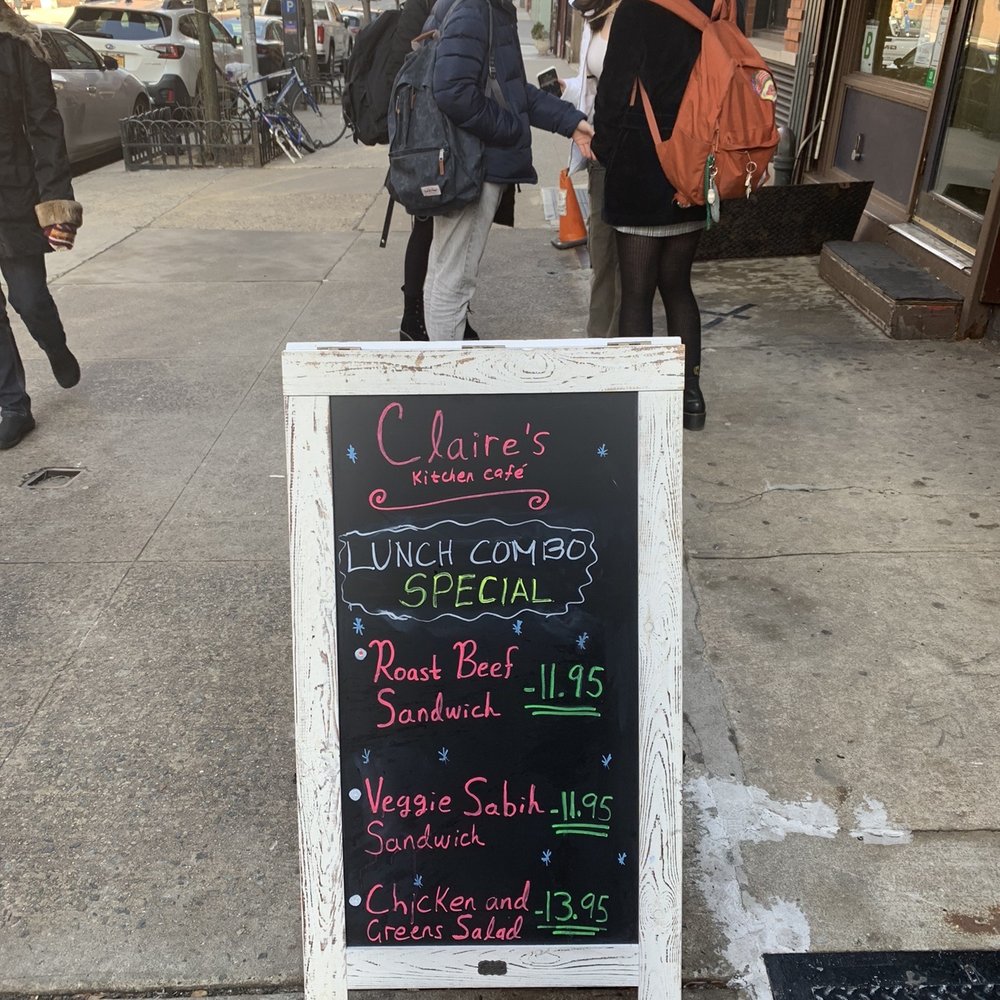 Claire's
Kitchen Café
LUNCH COMBO
SPECIAL
Roast Beef
Sandwich -11.95
Veggie Sabih -11.95
Sandwich
Chicken and
Greens Salad -13.95
B
P